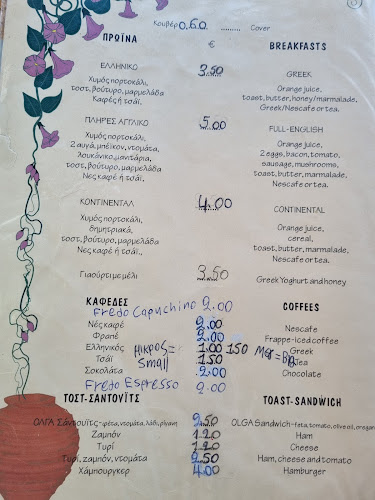 Κουβέρ 0.60 ......... Cover
ΠΡΩΪΝΑ € BREAKFASTS
ΕΛΛΗΝΙΚΟ 3.50 GREEK
Χυμός πορτοκάλι, Orange juice,
τοστ, βούτυρο, μαρμελάδα toast, butter, honey/marmalade,
Καφές ή τσάϊ. Greek/Nescafe or tea.
ΠΛΗΡΕΣ ΑΓΓΛΙΚΟ 5.00 FULL-ENGLISH
Χυμός πορτοκάλι, Orange juice,
2 αυγά, μπέϊκον, ντομάτα, 2 eggs, bacon, tomato,
λουκάνικο, μανιτάρια, sausage, mushrooms,
τοστ, βούτυρο, μαρμελάδα toast, butter, marmalade,
Νες καφέ ή τσάϊ. Nescafe or tea.
ΚΟΝΤΙΝΕΝΤΑΛ 4.00 CONTINENTAL
Χυμός πορτοκάλι, Orange juice,
δημητριακά, cereal,
τοστ, βούτυρο, μαρμελάδα toast, butter, marmalade,
Νες καφέ ή τσάϊ. Nescafe or tea.
Γιαούρτι με μέλι 3.50 Greek Yoghurt and honey
ΚΑΦΕΔΕΣ COFFEES
Fredo Capuchino 2.00
Νες καφέ 2.00 Nescafe
Φραπέ 2.00 Frappe-iced coffee
Ελληνικός ΜΙΚΡΟΣ= Small 1.00 1.50 Greek
Τσάϊ 1.50 Tea
Σοκολάτα 2.00 Chocolate
Fredo Espresso 2.00
ΤΟΣΤ-ΣΑΝΤΟΥΪΤΣ TOAST-SANDWICH
ΟΛΓΑ Σάντουϊτς-φέτα, ντομάτα, λάδι, ρίγανη 2.50 OLGA Sandwich-feta, tomato, olive oil,
Ζαμπόν 1.20 Ham
Τυρί 1.20 Cheese
Τυρί, ζαμπόν, ντομάτα 2.50 Ham, cheese and tomato
Χάμπουργκερ 4.00 Hamburger